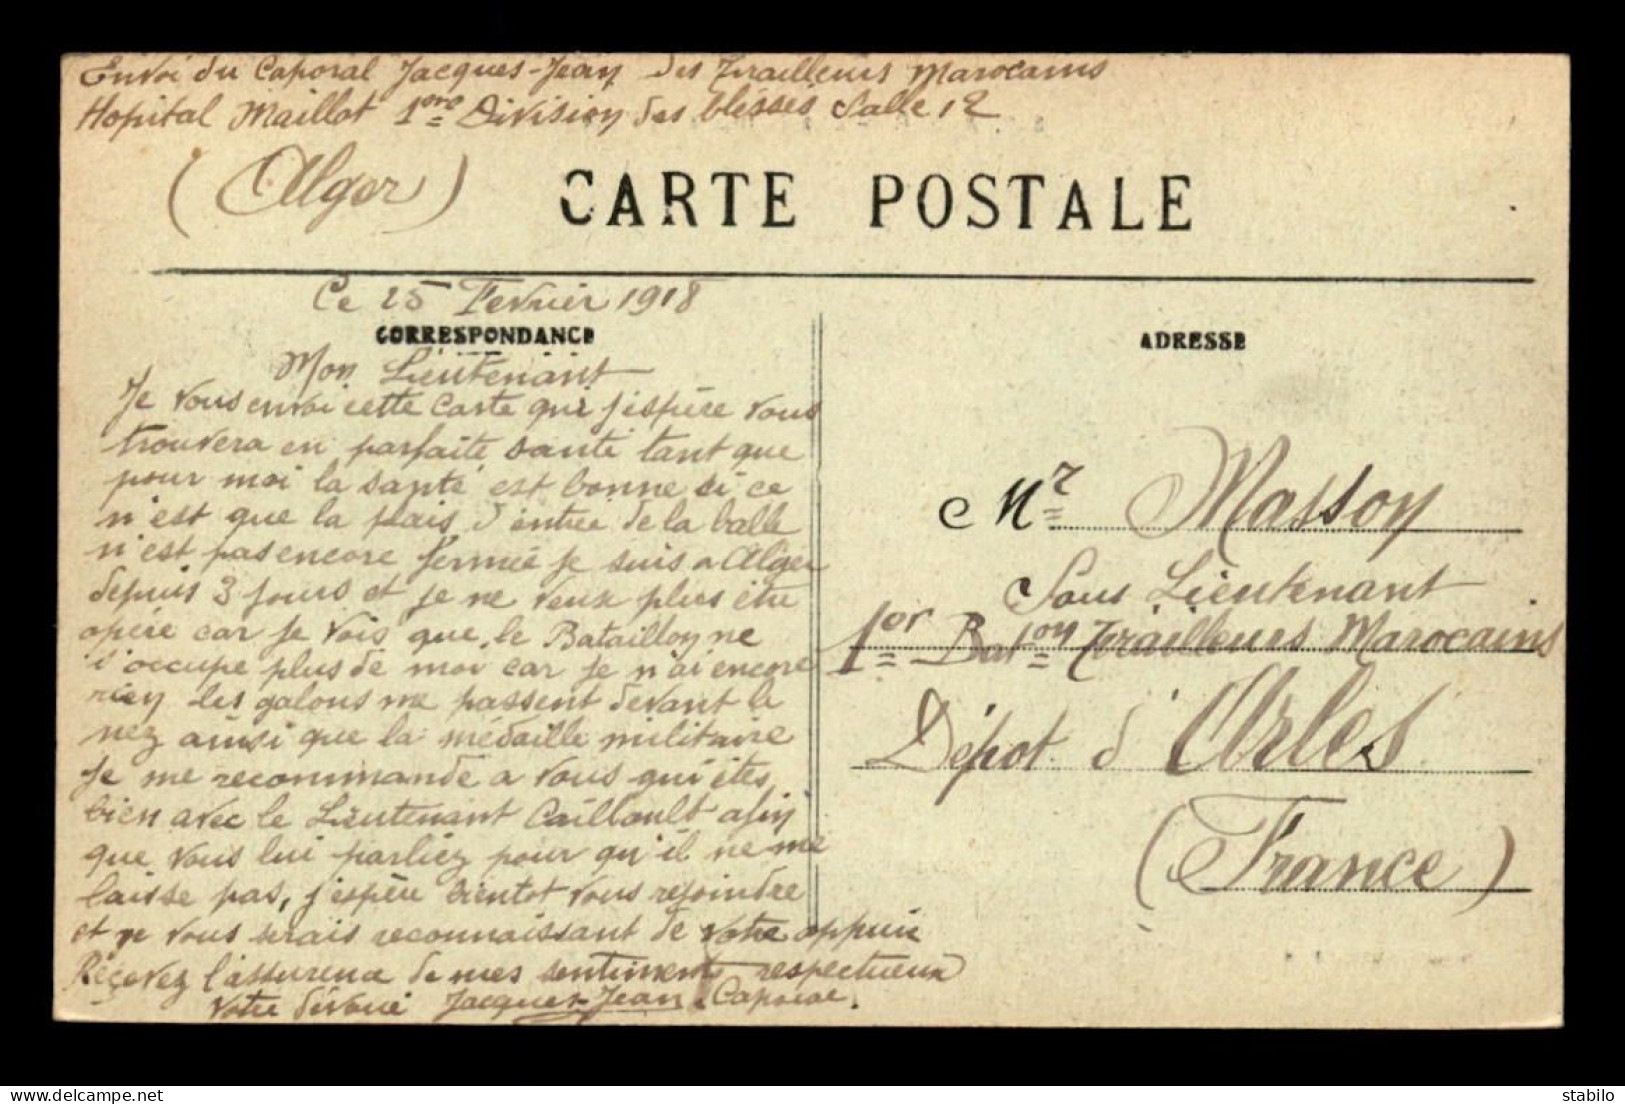 Envoi du Caporal Jacques-Jean des Tirailleurs Marocains
Hopital Maillot 1ere Division des blessés Salle 12
(Alger)
CARTE POSTALE
Ce 25 Fevrier 1918
CORRESPONDANCE
Mon Lieutenant
Je vous envoi cette carte qui j'espère vous
trouvera en parfaite santé tant que
pour moi la santé est bonne si ce
n'est que la plais d'entrée de la balle
n'est pas encore fermée je suis a Alger
depuis 3 jours et je ne veux plus être
opéré car je vois que le Bataillon ne
s'occupe plus de moi car je n'ai encore
rien les galons me passent devant le
nez ainsi que la médaille militaire
Je me recommande a vous qui êtes
bien avec le Lieutenant Caillault afin
que vous lui parliez pour qu'il ne me
laisse pas, j'espère bientot vous rejoindre
et je vous serais reconnaissant de votre appui
Reçevez l'assurence de mes sentiments respectueux
Votre dévoué Jacques-Jean Caporal.
ADRESSE
Mr Masson
Sous Lieutenant
1er Baton Tirailleurs Marocains
Dépot d'Arles
(France)
©stabilo
delcampe.net